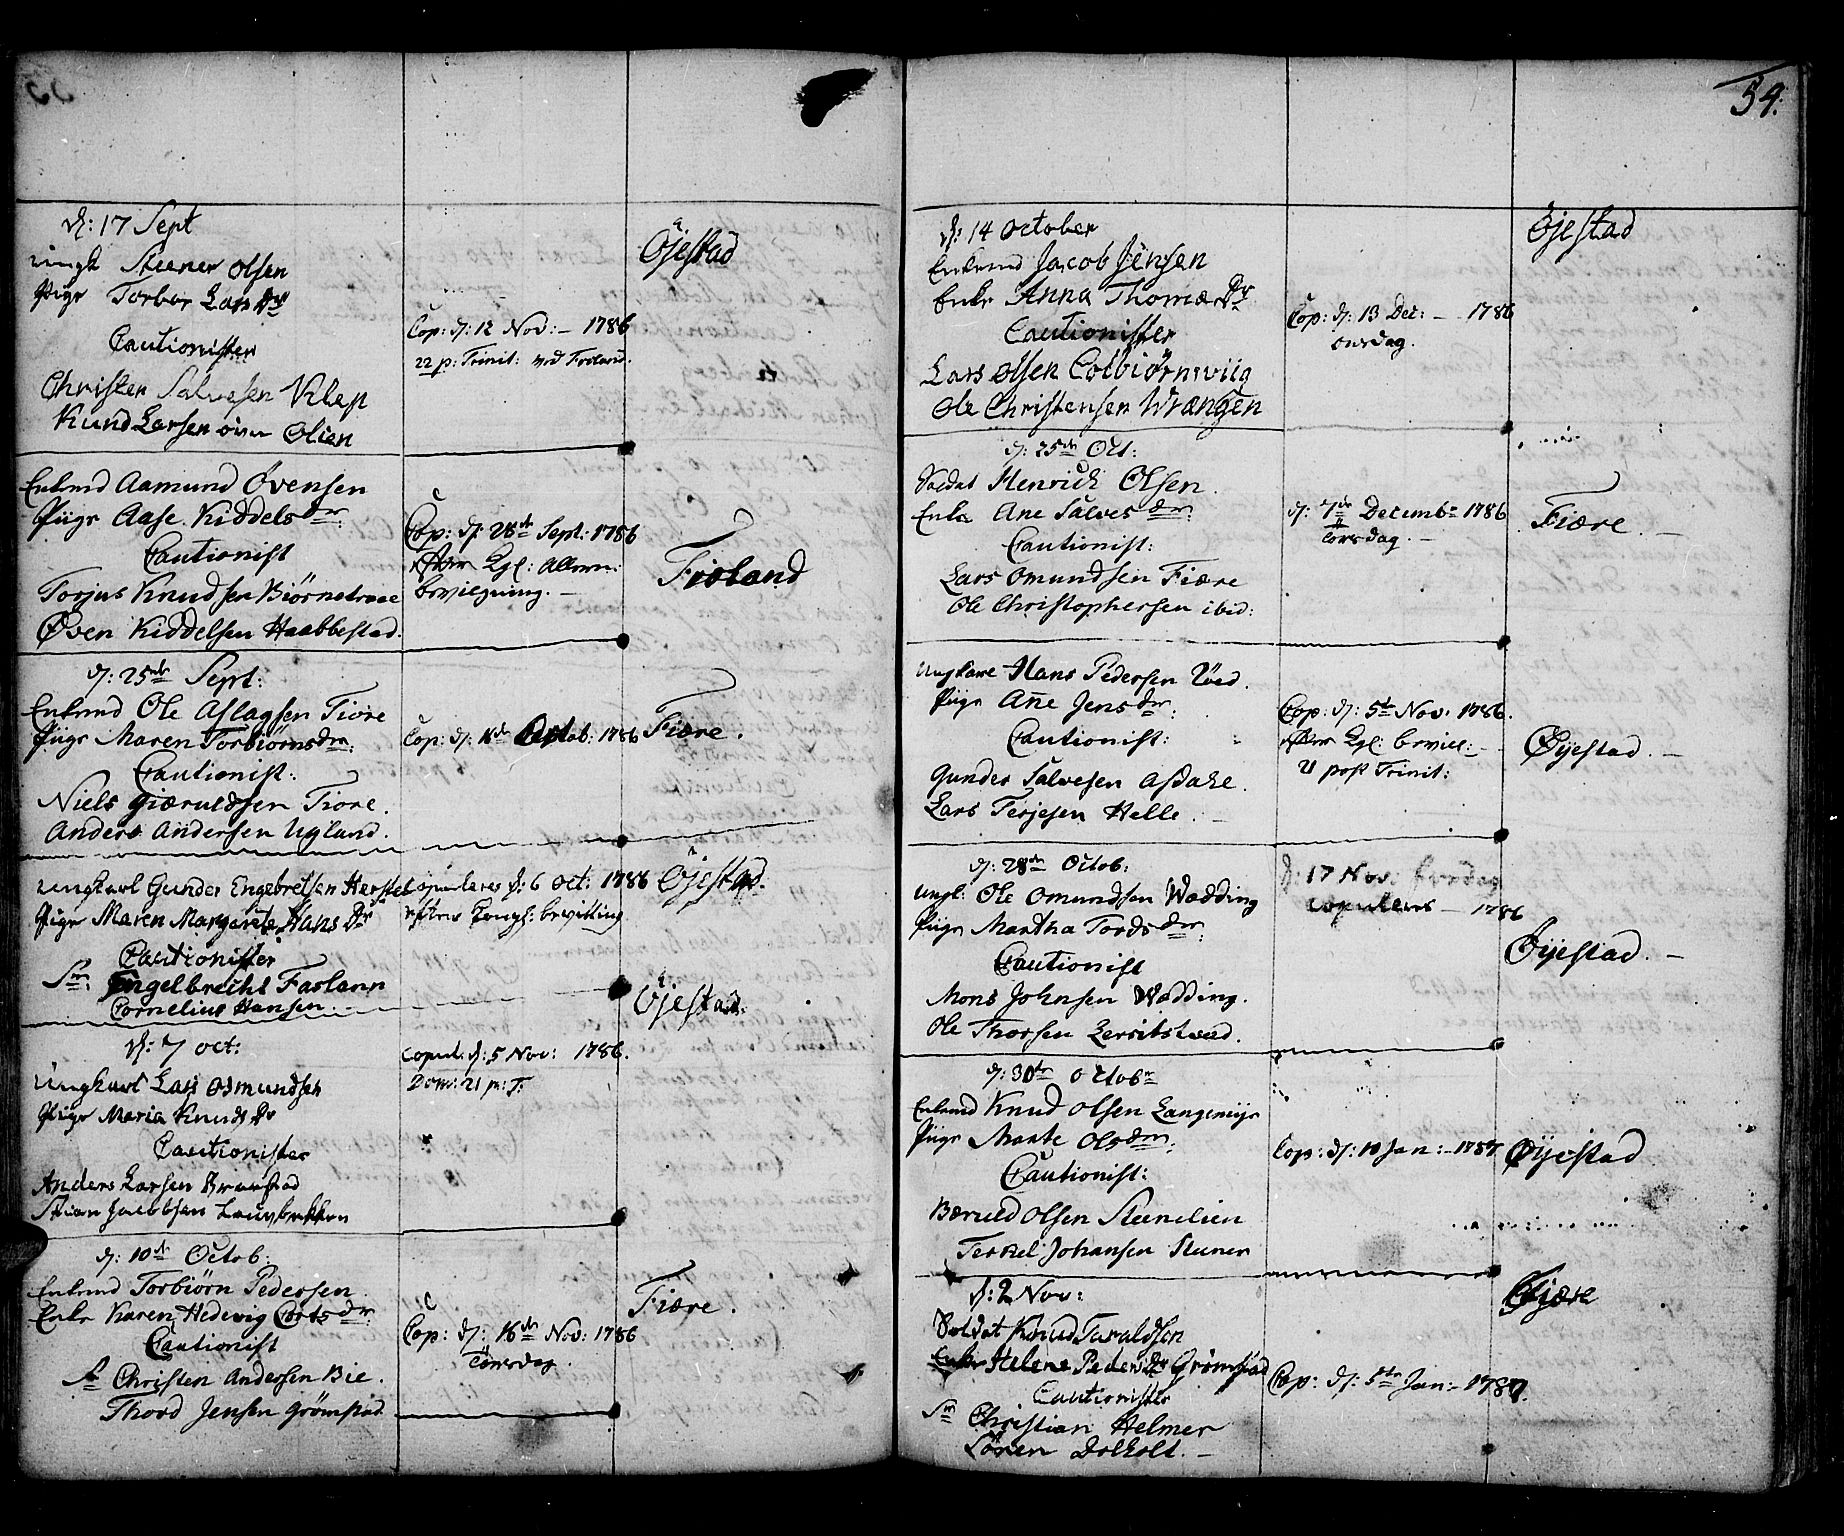 54.
d: 17 Sept
ungk Steener Olsen
Pige Torbor Lars Dr
Cautionister
Christen Salvesen Klep
Knud Larsen Olien
Cop: d: 12 Nov: – 1786
22 p: Trinit: ved Froland.
Öjestad
Enkemd Aamund Øvensen
Pige Aase Kiddelsdtr
Cautionist
Torjus Knudsen Biørnetraae
Øven Kiddelsen Haabbestad.
Cop: d: 28de Sept: 1786
efter Kgl: Allern:
bevilgning. –
Froland
d: 25de Sept:
Enkemd Ole Aslagsen Fiære
Pige Maren Torbiørnsdr:
Cautionist:
Niels Giæruldsen Fiære.
Anders Andersen Ugland.
Cop: d: Octob: 1786
Fiære.
ungkarl Gunder Engebretsen Herstel
Pige Maren Margarete Hans Dr
Cautionister
Sr: Engelbrecht Faslann
Cornelius Hansen
copuleres d: 6 Oct: 1786
efter Kongl: bevilling
Öjestad.
d: 7 Oct:
Ungkarl Lars Osmundsen
Pige Maria Knuds Dr
Cautionister
Anders Larsen
Stian Jacobsen Lauvbekken
copul: d: 5 Nov: 1786.
Dom: 21 p: T:
Öjestad.
d: 10de Octob:
Enkemd Torbiörn Pedersen.
Enke Karen Hedevig Cortsdr:
Cautionist
Sr Christen Andersen Bie.
Thord Jensen Grömstad.
Cop: d: 16de Nov: 1786
Torsdag.
Fiære.
d: 14 October
Enkemd Jacob Jensen
Enke Anna Thomæ Dr
Cautionister
Lars Olsen Colbiörnsviig
Ole Christensen Wrængen
Cop: d: 13 Dec: – 1786
onsdag.
Öjestad
d: 25de Oct:
Soldat Henrich Olsen.
Enke Ane Salvesdr:
Cautionist:
Lars Omundsen Fiære
Ole Christophersen ibid:
d: 7de Decembr 1786
torsdag. –
Fiære. –
Ungkare Hans Pedersen
Pige Ane Jensdr:
Cautionist:
Gunder Salvesen
Lars Terjesen Helle. –
Cop: d: 5te Nov: 1786.
efter Kgl: bevill: –
21 post Trinit:
Øyestad. –
d: 28de Octob:
ungk: Ole Omundsen Wædding
Pige Martha Tordsdr:
Cautionist
Mons Johnsen Wædding.
Ole Thorsen
d: 17 Nov: fredag
copuleres – 1786
Øyestad. –
d: 30te Octobr
Enkemd Knud Olsen Langemyr
Pige Marte Olsdr:
Cautionist:
Bæruld Olsen Steenelien
Terkel Johansen Steener
Cop: d: 10 Jan: – 1787
Øyestad
d: 2 Nov:
Soldat Knud Taraldsen
Enke Helene Peders Dr Grömstad
Cautionister
Sr Christian Helmer
Sören Dolholt. –
Cop: d: 5te Jan: – 1787.
Fjære